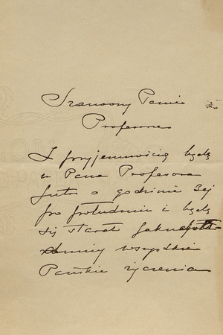 Szanowny Panie
Profesorze
Z przyjemnością będę
u Pana Profesora
jutro o godzinie 3ej
po południu i będę
się starał
wszystkie
Pańskie życzenia